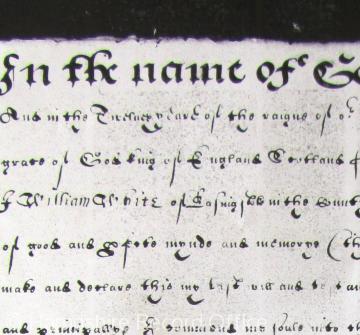 In the name of Go
And in the Twelueth yeare of the raigne of o
grace of God king of England Scotland f
I William White of in the Count
of good and p̱fecte mynde and memorye (th
make and declare this my last will and te
and principallye I commend my soule into
Record Office